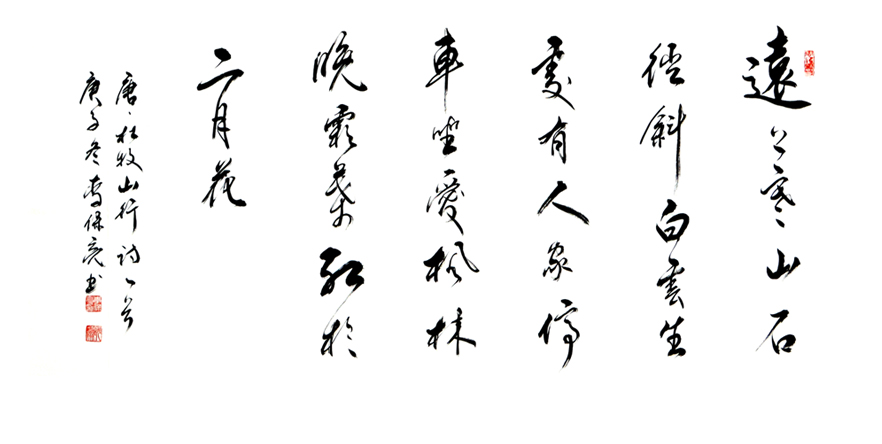 遠上寒山石
徑斜白雲生
處有人家停
車坐愛楓林
晚霜葉紅於
二月花
唐、杜牧山行詩一首
庚子冬李保亮书